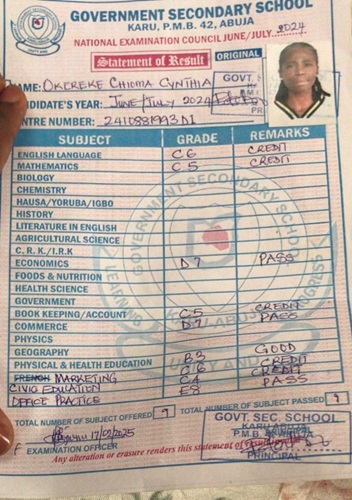 GOVERNMENT SECONDARY SCHOOL
KARU, P.M.B. 42, ABUJA
NATIONAL EXAMINATION COUNCIL JUNE/JULY 2024
Statement of Result ORIGINAL
NAME: OKEREKE CHIOMA CYNTHIA
CANDIDATE'S YEAR: JUNE/JULY 2024
CENTRE NUMBER:
SUBJECT GRADE REMARKS
ENGLISH LANGUAGE C6 CREDIT
MATHEMATICS C5 CREDIT
BIOLOGY
CHEMISTRY
HAUSA/YORUBA/IGBO
HISTORY
LITERATURE IN ENGLISH
AGRICULTURAL SCIENCE
C. R. K./I.R.K
ECONOMICS D7 PASS
FOODS & NUTRITION
HEALTH SCIENCE
GOVERNMENT
BOOK KEEPING/ACCOUNT C5 CREDIT
COMMERCE D7 PASS
PHYSICS
GEOGRAPHY
PHYSICAL & HEALTH EDUCATION B3 GOOD
FRENCH MARKETING C6 CREDIT
CIVIC EDUCATION C4 CREDIT
OFFICE PRACTICE E8 PASS
TOTAL NUMBER OF SUBJECT OFFERED 9 TOTAL NUMBER OF SUBJECT PASSED 9
GOVT. SEC. SCHOOL
17/02/2025
EXAMINATION OFFICER PRINCIPAL
Any alteration or erasure renders this statement of